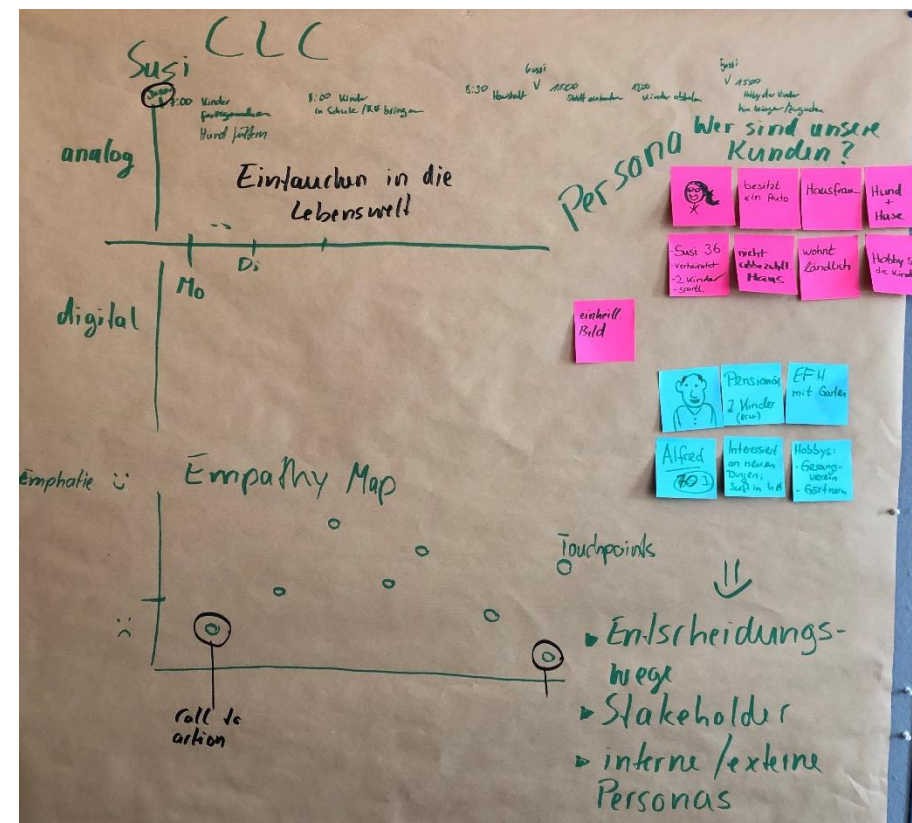 Susi CLC
7:00 Kinder
Hund füttern
8:00 Kinder
in Schule/KG bringen
8:30 Haushalt
Gassi
V
Stadt einkaufen
Kinder abholen
Gassi
V 15:00
Hobby der Kinder
analog
Eintauchen in die
Lebenswelt
Mo
Di
digital
Persona
Wer sind unsere
Kunden?
besitzt
ein Auto
Hausfrau
Hund
+
Hase
-Susi 36
-verheiratet
-2 Kinder
-sportl.
nicht
abbezahlt
Haus
wohnt
ländlich
Hobby s
die Kind
einheitl.
Bild
Pensionär
2 Kinder
EFH
mit Garten
Alfred
70 J
Interessiert
an neuen
Dingen,
Hobbys:
- Gesang-
verein
- Gärtnern
Emphatie
Empathy Map
Touchpoints
call to
action
Entscheidungs-
wege
Stakeholder
interne/externe
Personas